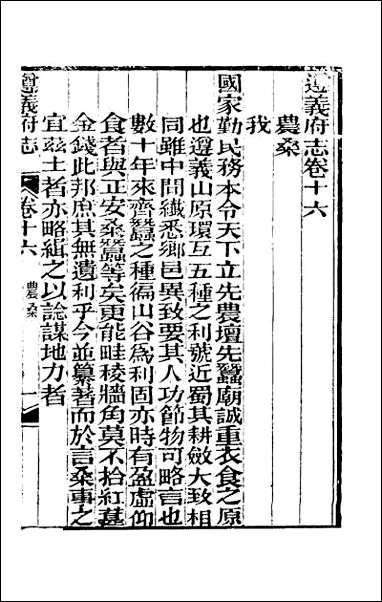 遵義府志卷十六
農桑
我
國家勤民務本令天下立先農壇先蠶廟誠重衣食之原
也遵義山原環互五種之利號近蜀其耕斂大致相
同雖中間纖悉鄉邑異致要其人功節物可略言也
數十年來齊蠶之種徧山谷爲利固亦時有盈虛仰
食者與正安桑蠶等矣更能畦稜牆角莫不拾紅葚
金錢此邦庶其無遺利乎今並纂著而於言桑事之
宜茲土者亦略緝之以諗謀地力者
遵義府志
卷十六
農桑
一